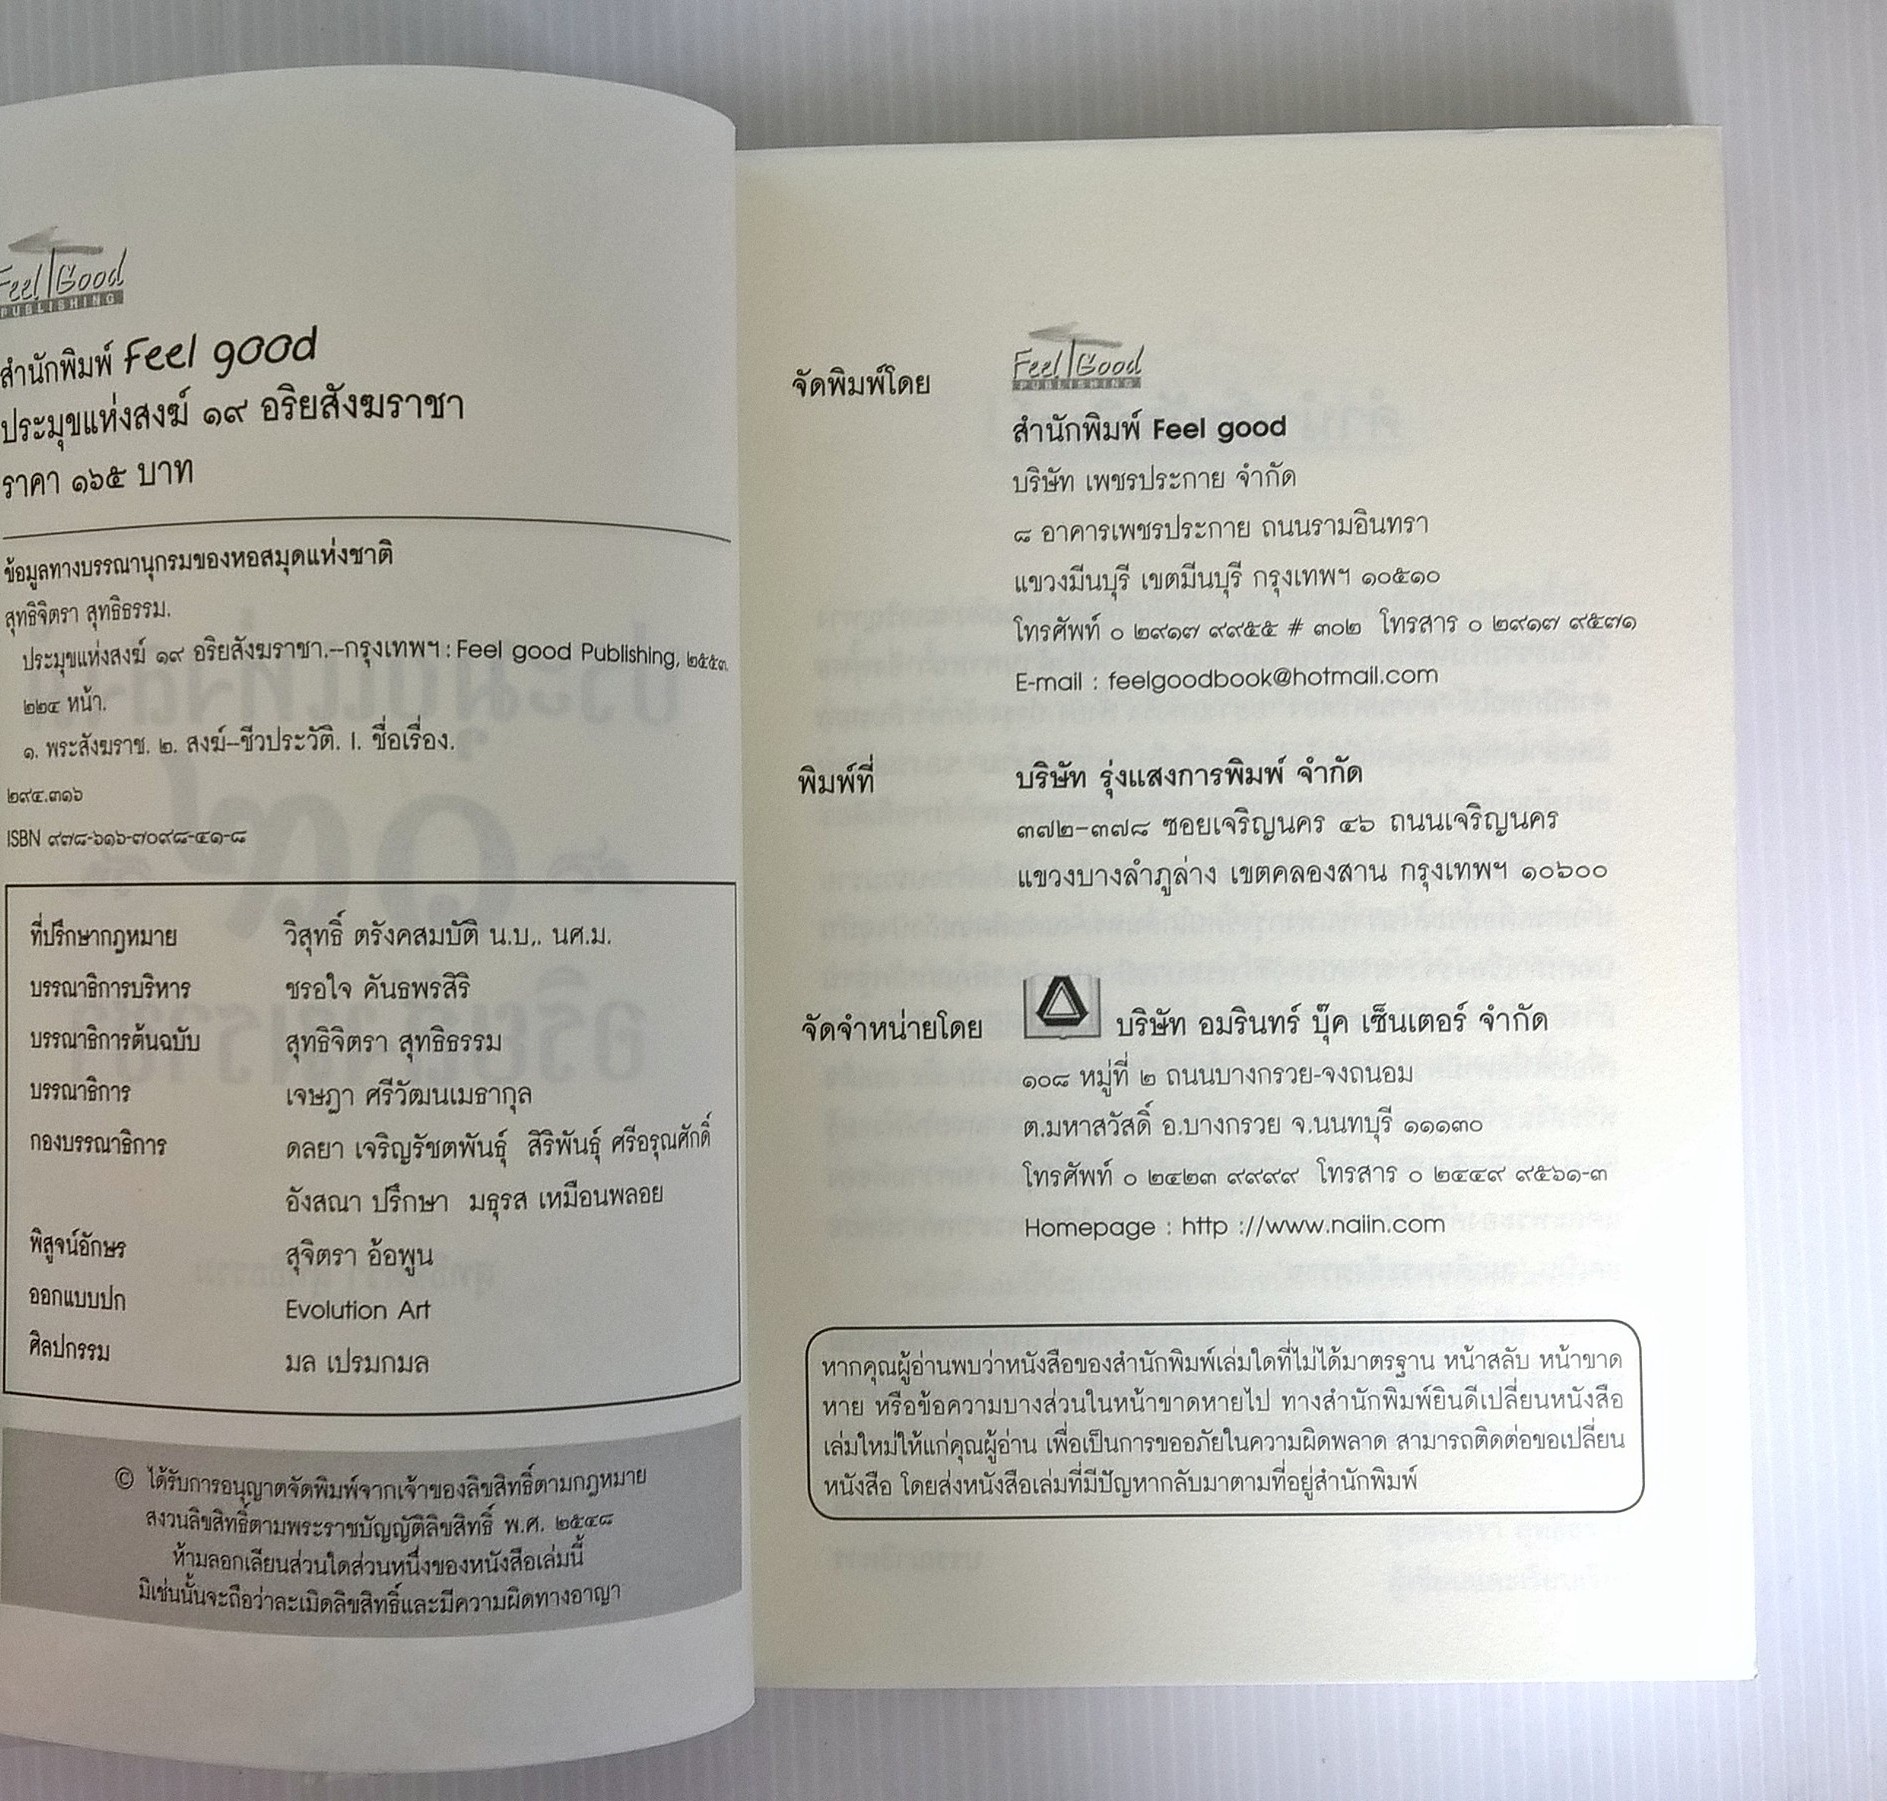 Feel Good
PUBLISHING
สำนักพิมพ์ Feel good
ประมุขแห่งสงฆ์ ๑๙ อริยสังฆราชา
ราคา ๑๖๕ บาท
ข้อมูลทางบรรณานุกรมของหอสมุดแห่งชาติ
สุทธิจิตรา สุทธิธรรม.
ประมุขแห่งสงฆ์ ๑๙ อริยสังฆราชา.--กรุงเทพฯ : Feel good Publishing, ๒๕๕๓.
๒๒๔ หน้า.
๑. พระสังฆราช. ๒. สงฆ์--ชีวประวัติ. I. ชื่อเรื่อง.
๒๙๔.๓๑๖
ISBN ๙๗๘-๖๑๖-๗๐๙๘-๔๑-๘
ที่ปรึกษากฎหมาย วิสุทธิ์ ตรังคสมบัติ น.บ,. นศ.ม.
บรรณาธิการบริหาร ชรอใจ คันธพรสิริ
บรรณาธิการต้นฉบับ สุทธิจิตรา สุทธิธรรม
บรรณาธิการ เจษฎา ศรีวัฒนเมธากุล
กองบรรณาธิการ ดลยา เจริญรัชตพันธุ์ สิริพันธุ์ ศรีอรุณศักดิ์
อังสณา ปรึกษา มธุรส เหมือนพลอย
พิสูจน์อักษร สุจิตรา อ้อพูน
ออกแบบปก Evolution Art
ศิลปกรรม มล เปรมกมล
© ได้รับการอนุญาตจัดพิมพ์จากเจ้าของลิขสิทธิ์ตามกฎหมาย
สงวนลิขสิทธิ์ตามพระราชบัญญัติลิขสิทธิ์ พ.ศ. ๒๕๔๘
ห้ามลอกเลียนส่วนใดส่วนหนึ่งของหนังสือเล่มนี้
มิเช่นนั้นจะถือว่าละเมิดลิขสิทธิ์และมีความผิดทางอาญา
จัดพิมพ์โดย Feel Good
PUBLISHING
สำนักพิมพ์ Feel good
บริษัท เพชรประกาย จำกัด
๘ อาคารเพชรประกาย ถนนรามอินทรา
แขวงมีนบุรี เขตมีนบุรี กรุงเทพฯ ๑๐๕๑๐
โทรศัพท์ ๐ ๒๙๑๗ ๙๙๕๕ # ๓๐๒ โทรสาร ๐ ๒๙๑๗ ๙๕๗๑
E-mail : feelgoodbook@hotmail.com
พิมพ์ที่ บริษัท รุ่งแสงการพิมพ์ จำกัด
๓๗๒-๓๗๘ ซอยเจริญนคร ๔๖ ถนนเจริญนคร
แขวงบางลำภูล่าง เขตคลองสาน กรุงเทพฯ ๑๐๖๐๐
จัดจำหน่ายโดย บริษัท อมรินทร์ บุ๊ค เซ็นเตอร์ จำกัด
๑๐๘ หมู่ที่ ๒ ถนนบางกรวย-จงถนอม
ต.มหาสวัสดิ์ อ.บางกรวย จ.นนทบุรี ๑๑๑๓๐
โทรศัพท์ ๐ ๒๔๒๓ ๙๙๙๙ โทรสาร ๐ ๒๔๔๙ ๙๕๖๑-๓
Homepage : http ://www.naiin.com
หากคุณผู้อ่านพบว่าหนังสือของสำนักพิมพ์เล่มใดที่ไม่ได้มาตรฐาน หน้าสลับ หน้าขาด
หาย หรือข้อความบางส่วนในหน้าขาดหายไป ทางสำนักพิมพ์ยินดีเปลี่ยนหนังสือ
เล่มใหม่ให้แก่คุณผู้อ่าน เพื่อเป็นการขออภัยในความผิดพลาด สามารถติดต่อขอเปลี่ยน
หนังสือ โดยส่งหนังสือเล่มที่มีปัญหากลับมาตามที่อยู่สำนักพิมพ์